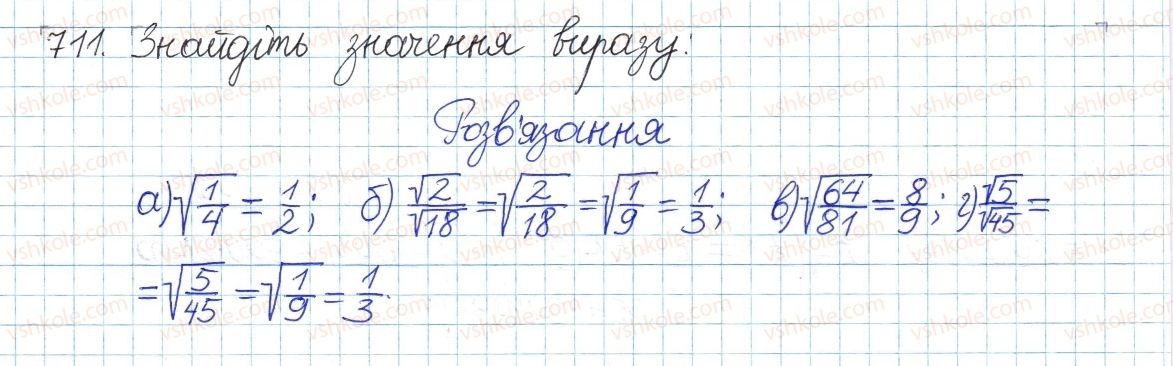 711. Знайдіть значення виразу:
Розв'язання
а) √(1/4) = 1/2; б) √2/√18 = √(2/18) = √(1/9) = 1/3; в) √(64/81) = 8/9; г) √5/√45 =
= √(5/45) = √(1/9) = 1/3.